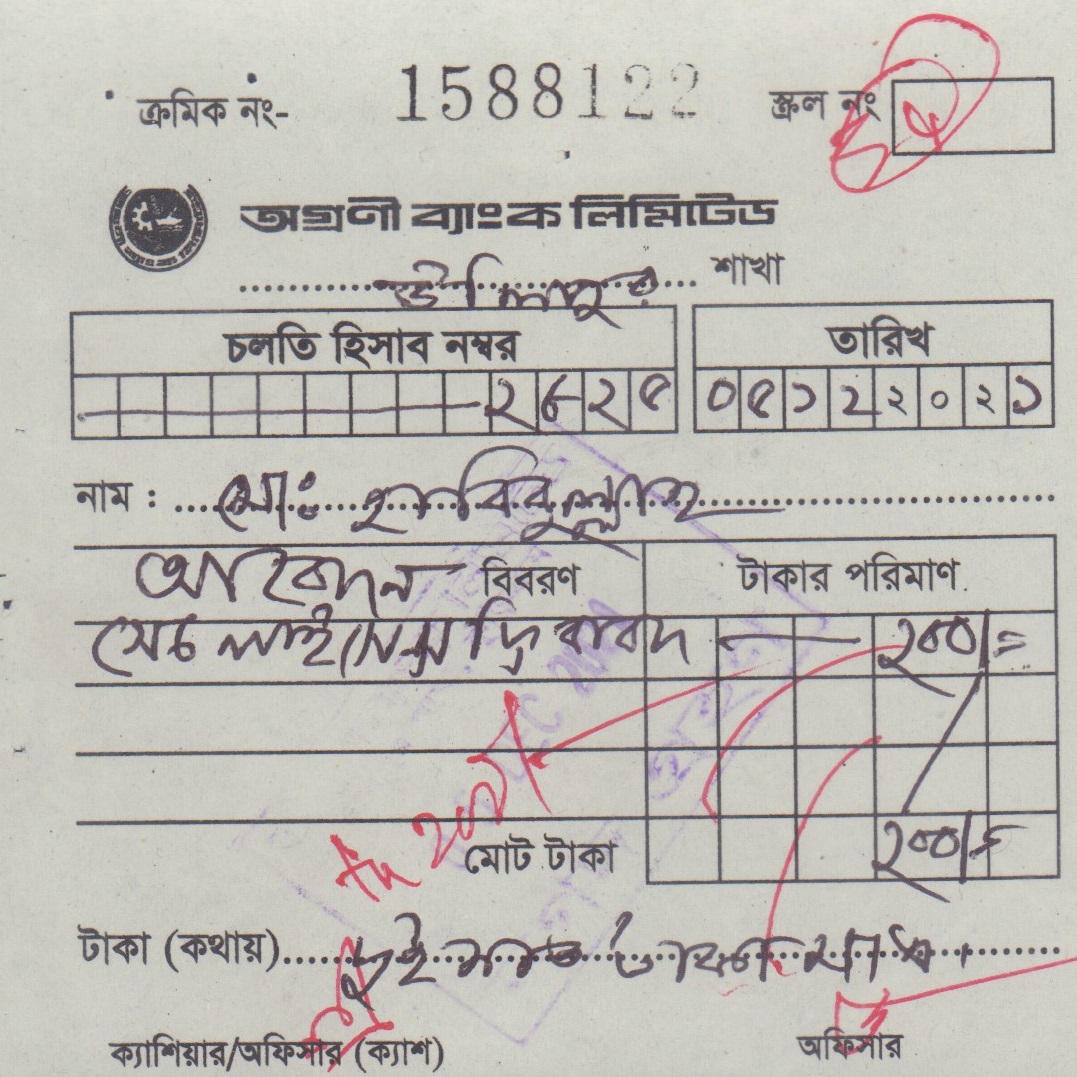 ক্রমিক নং- 1588122 স্ক্রল নং
অগ্রণী ব্যাংক লিমিটেড
উলিপুর শাখা
চলতি হিসাব নম্বর তারিখ
২৬২৫ ০৫১২২০২১
নাম : মোঃ হাবিবুল্লাহ
আবেদন বিবরণ টাকার পরিমাণ
সেচ লাইসেন্স ফি বাবদ ২০০/=
মোট টাকা ২০০/=
টাকা (কথায়) দুই শত টাকা মাত্র।
ক্যাশিয়ার/অফিসার (ক্যাশ) অফিসার